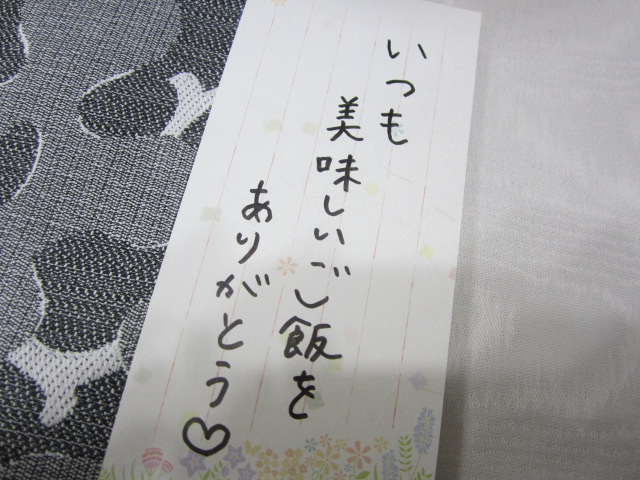 いつも
美味しいご飯を
ありがとう♡